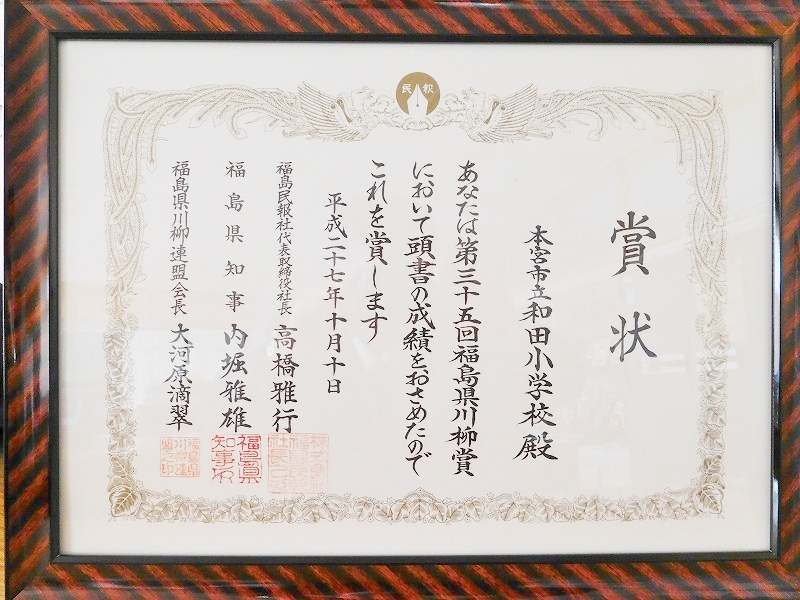 民報
賞状
本宮市立和田小学校殿
あなたは第三十五回福島県川柳賞
において頭書の成績をおさめたので
これを賞します
平成二十七年十月十日
福島民報社代表取締役社長 高橋雅行
福島県知事 内堀雅雄
福島県知事之印
福島県川柳連盟会長 大河原滴翠